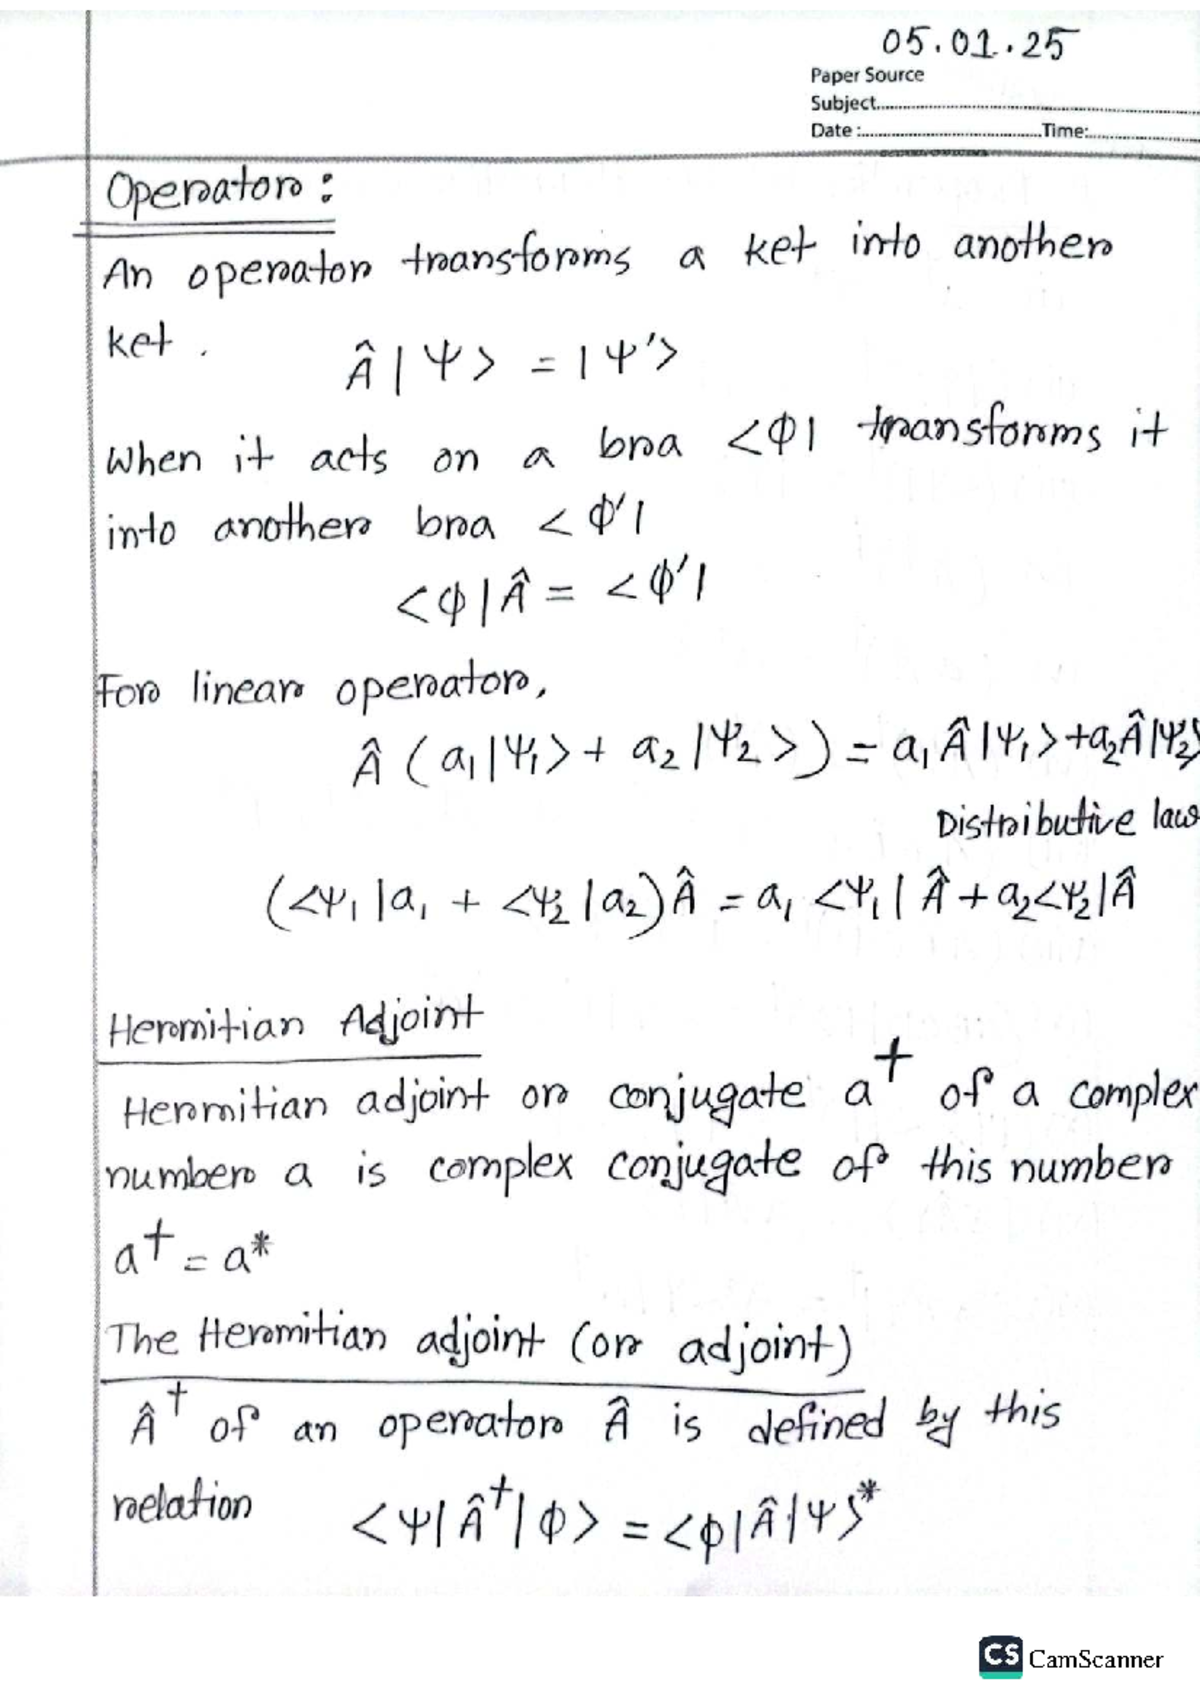 05.01.25
Paper Source
Subject
Date : Time:
Operator:
An operator transforms a ket into another
ket.
Â|Ψ> = |Ψ'>
When it acts on a bra <Φ| transforms it
into another bra <Φ'|
<Φ|Â = <Φ'|
For linear operator,
Â (a₁|Ψ₁> + a₂|Ψ₂>) = a₁Â|Ψ₁>+a₂Â|Ψ₂>
Distributive law
(<Ψ₁|a₁ + <Ψ₂|a₂)Â = a₁<Ψ₁|Â + a₂<Ψ₂|Â
Hermitian Adjoint
Hermitian adjoint or conjugate a† of a complex
number a is complex conjugate of this number
a† = a*
The Hermitian adjoint (or adjoint)
Â† of an operator Â is defined by this
relation <Ψ|Â†|Φ> = <Φ|Â|Ψ>*
CS CamScanner